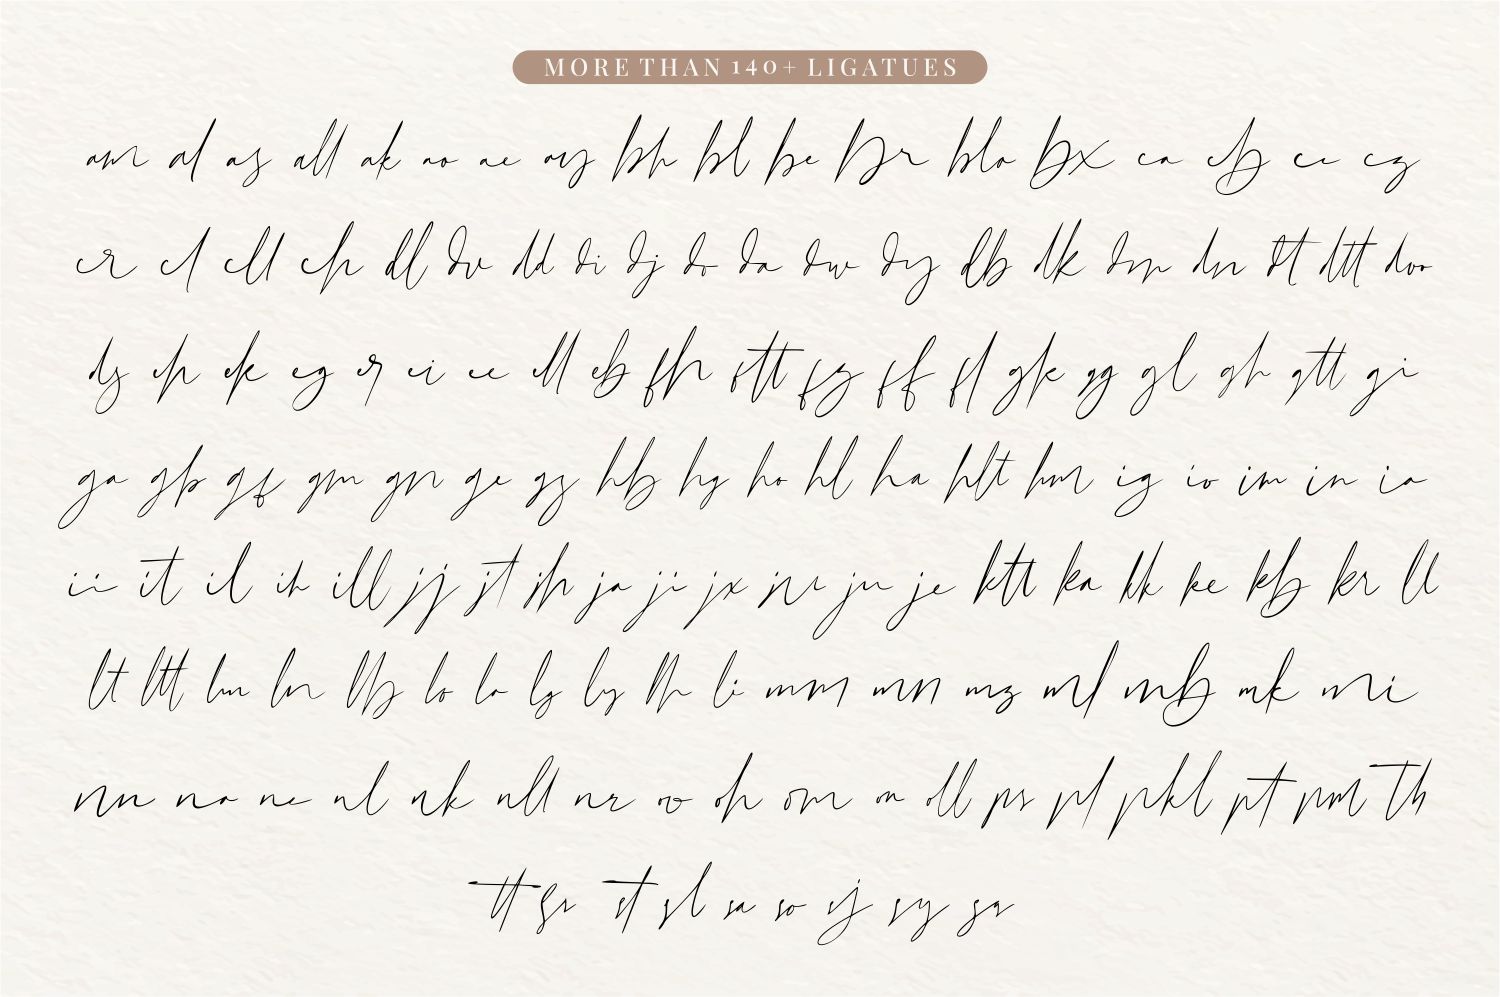 MORE THAN 140+ LIGATUES
am al as all ak ao ae ay bh bl be br blo bx ca cb cc cz
cr cl cll ch dl dv dd di dj do da dw dy db dk dm dn dt dtt doo
ds eh ek eg er ei ee ell eb fh ftt fz ff fl gk gg gl gh gtt gi
ga gb gf gm gn ge gz hb hg ho hl ha hlt hm ig io im in ia
ii it il ih ill jj jt jh ja ji jx jn ju je ktt ka kk ke kb kr ll
lt ltt lm ln llb lo la ls ly lh li mm mn mz ml mb mk mi
nn na ne nl nk nll nr oo oh om on oll ps pl pkl pt pm Th
tt sr st sl sa so sj sy